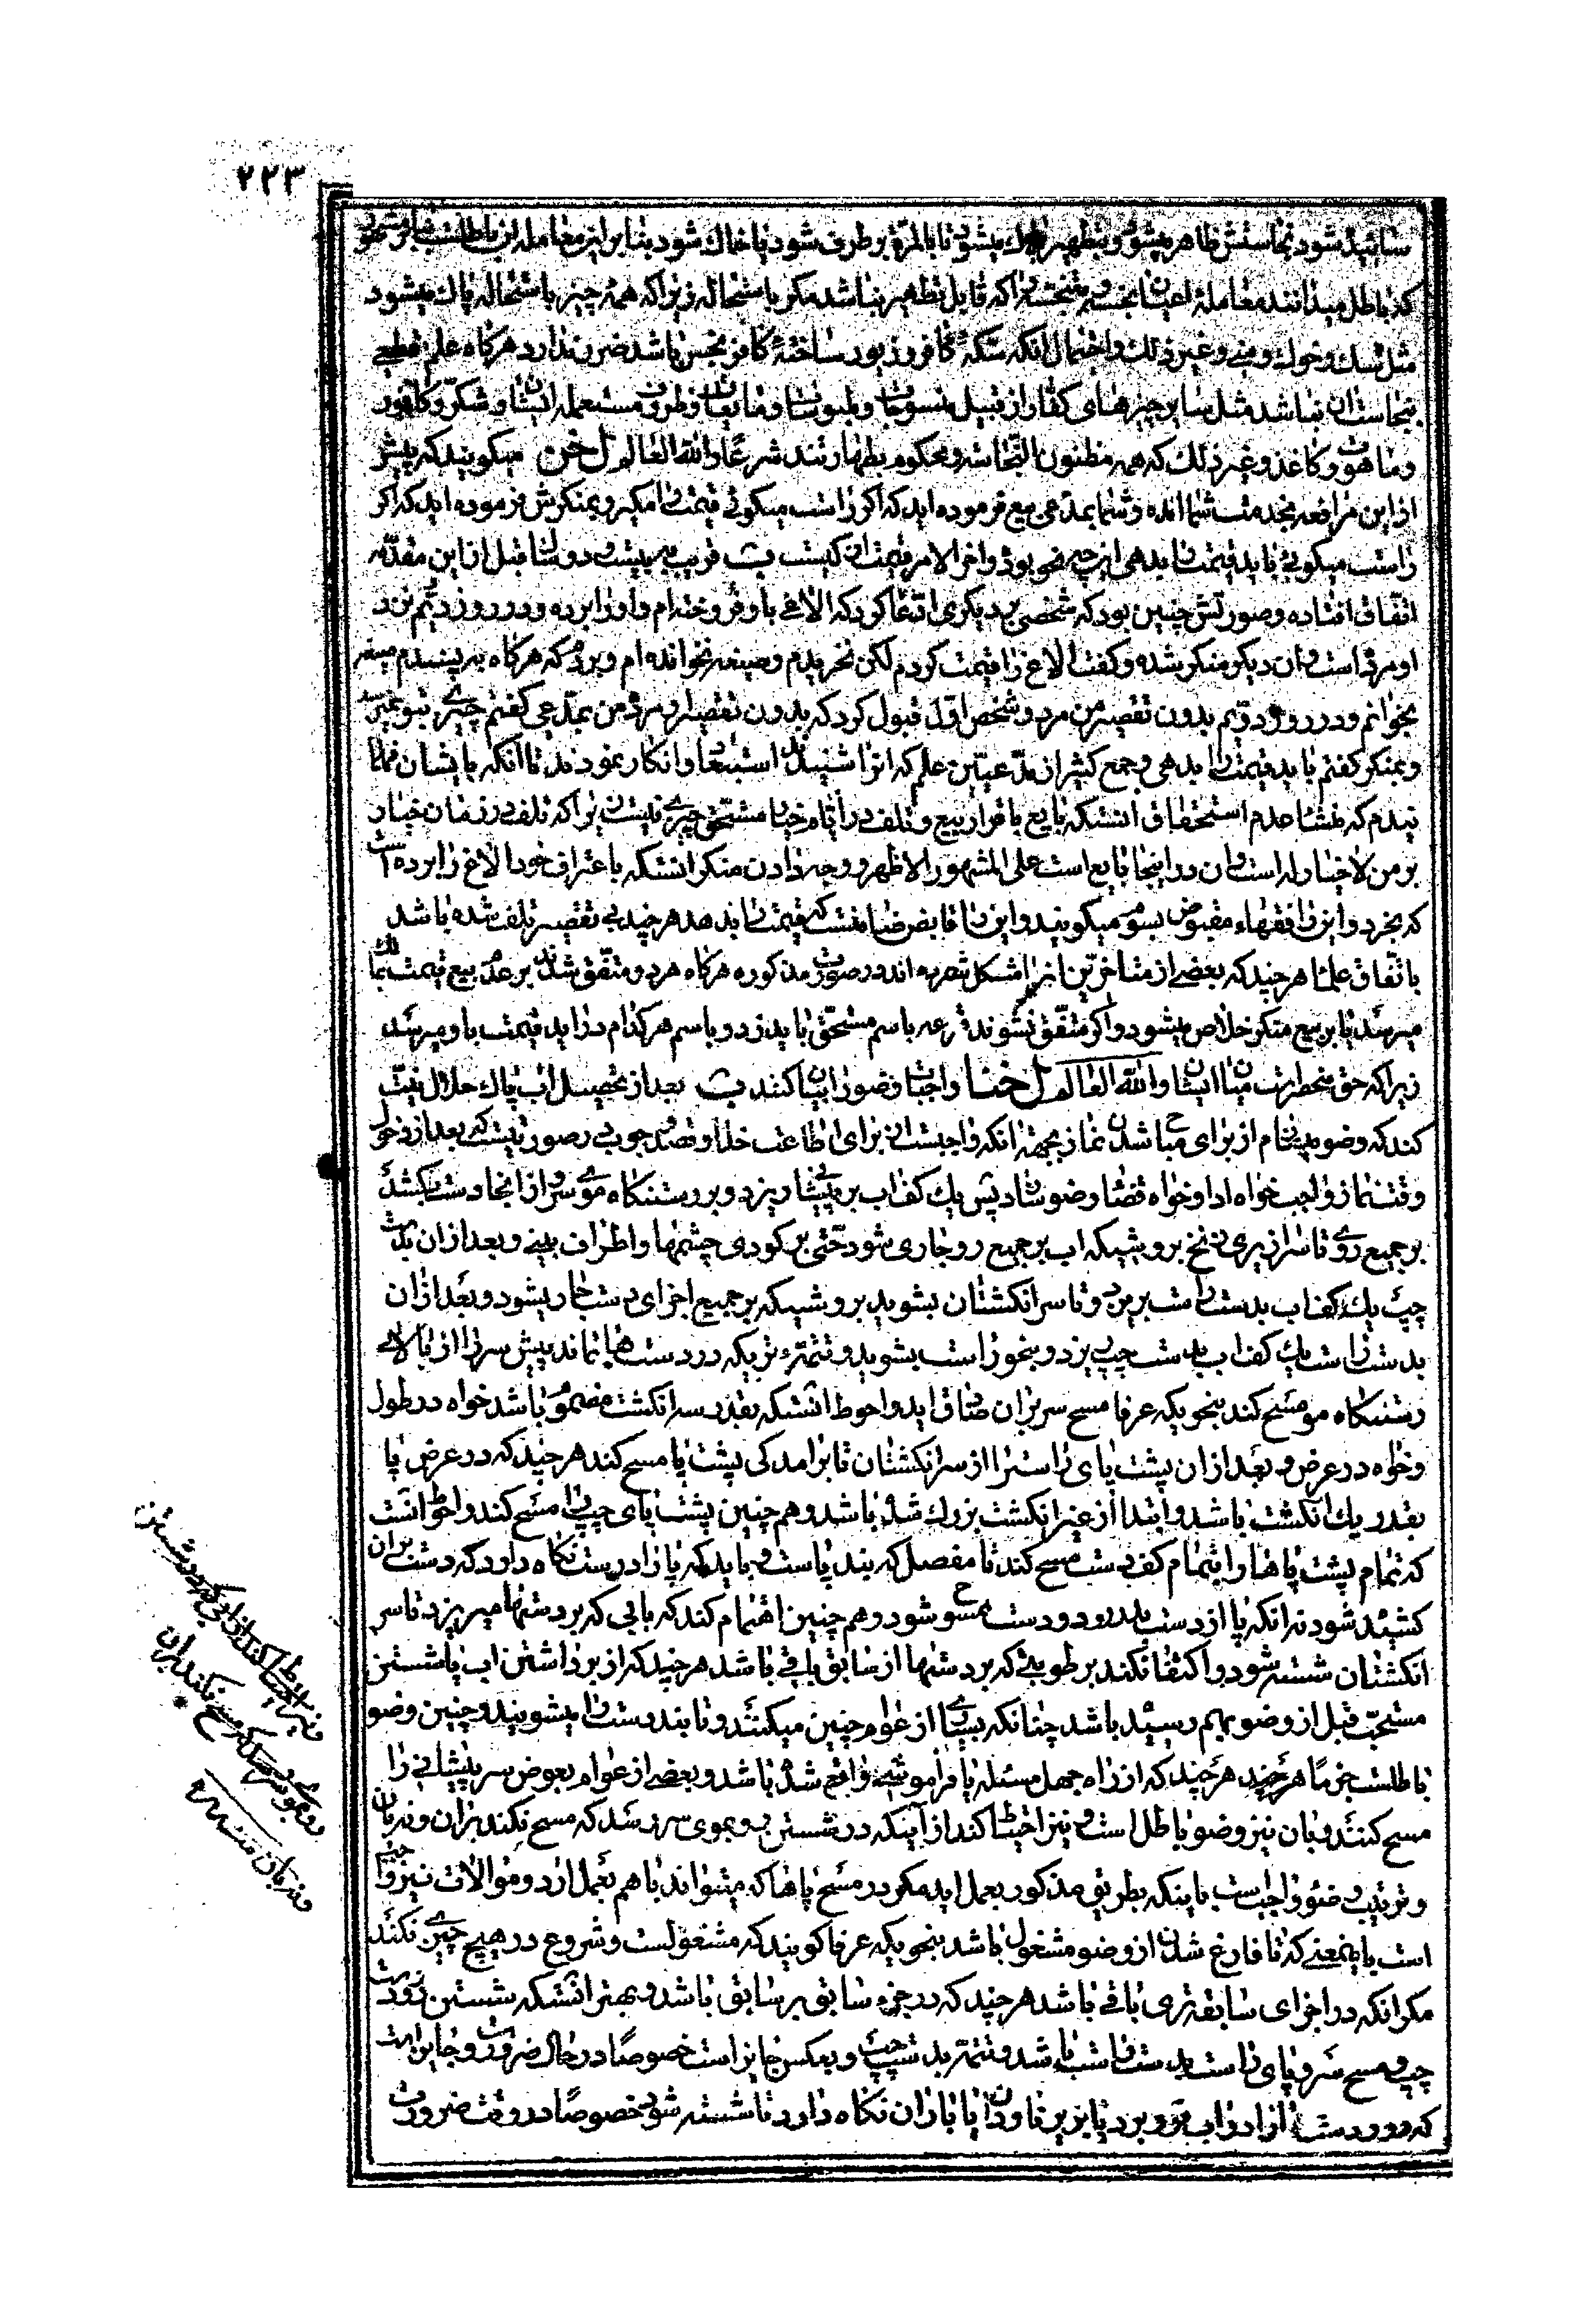 ۲۲۳
سائیده شود نجاستش ظاهر میشود و بتطهیر پاک میشود تا بالمرّة بر طرف شود یا خاک شود بنا بر این معامله آن باطلست
که باطل میدانند معاملهٔ اعیان نجسه و متنجسه را که قابل تطهیر نباشد مکر باستحاله زیرا که همه چیز باستحاله پاک میشود
مثل سک و خوک و منی و غیر ذلک و احتمال آنکه سکّهٔ کافر و زیور ساختهٔ کافر نجس باشد ضرر ندارد هرکاه علم قطعی
بنجاست آن نباشد مثل سایر چیزهای کفّار از قبیل منسوجات و ملبوسات و مایعات و ظروف مستعمله ایشان و شکر و کافور
و ماهوت و کاغذ و غیر ذلک که همه مظنون النّجاسة و محکوم بطهارتند شرعًا و الله العالم ل خن میکویند که پیش
از این مرافعه بخدمت شما آمده و شما بمدّعی بیع فرموده اید که اکر راست میکوئی قیمت را مکیر و بمنکرش فرموده اید که اکر
راست میکوئی باید قیمت را بدهی این چه نحو بود و آخر الامر قیمت آن کیست ب قریب به بیست و دو سال قبل از این مقدّمه
اتّفاق افتاده و صورتش چنین بود که شخصی بر دیکری ادّعا کرد که الاغی باو فروخته ام و او را برده و در روز دیّم نزد
او مرده است و آن دیکر منکر شده و کفت الاغ را قیمت کردم لکن نخریدم و صیغه نخوانده ام و بردم که هرکاه به پسندم صیغه
بخوانم و در روز دویّم بدون تقصیر من مرد و شخص اوّل قبول کرد که بدون تقصیر او مرد من بمدّعی کفتم چیزی بتو نمیرسد
و بمنکر کفتم باید قیمت را بدهی و جمع کثیر از مدّعیین علم که آنرا شنیدند استبعاد و انکار نمودند تا آنکه بایشان فهما
نیدم که منشا عدم استحقاق آنستکه بایع باقرار بیع و تلف در ایّام خیار مستحق چیزی نیست زیرا که تلف در زمان خیار
بر من لا خیار له است و آن در اینجا بایع است علی المشهور الاظهر و وجه دادن منکر آنستکه باعتراف خود الاغ را برده است
که بخرد و این را فقهاء مقبوض بسوم میکویند و این را قابض ضامنست که قیمت را بدهد هرچند بی تقصیر تلف شده باشد
باتّفاق علما هرچند که بعضی از متاخرین آنرا مشکل شمرده اند و در صورت مذکوره هرکاه هردو متفّق شدند بر عدم بیع قیمت بمالک
میرسد یا بر بیع منکر خلاص میشود و اکر متفّق نشوند قرعه باسم مستحّق باید زد و باسم هرکدام درآید قیمت باو میرسد
زیرا که حق منحصر است میان ایشان و الله العالم ل خنا واجبات وضو را بیان کنند ب بعد از تحصیل آب پاک حلال نیّت
کند که وضو میسازم از برای مباح شدن نماز بجهة آنکه واجبست از برای اطاعت خدا و قصد وجوب در صورتیست که بعد از دخول
وقت نماز واجب خواه ادا و خواه قضا وضو سازد پس یک کف آب بر پیشانی ریزد و بر رستنکاه موی سر و از آنجا دست بکشد
بر جمیع روی تا سرازیری زنخ بروشیکه آب بر جمیع رو جاری شود حتّی بر کودی چشمها و اطراف بینی و بعد از آن بدست
چپ یک کف آب بدست راست بریزد و تا سر انکشتان بشوید بروشیکه بر جمیع اجزای دست جاری شود و بعد از آن
بدست راست یک کف آب بدست چپ بریزد و بنحو راست بشوید و تتمّهٔ تریکه در دستها بماند پیش سر را از بالای
رستنکاه مو مسح کند بنحویکه عرفا مسح سر بر آن صادق آید و احوط آنستکه بقدر سه انکشت مضموم باشد خواه در طول
و خواه در عرض و بعد از آن پشت پای راست را از سر انکشتان تا برآمدکی پشت پا مسح کند هرچند که در عرض پا
بقدر یک انکشت باشد و ابتدا از غیر انکشت بزرک شده باشد و هم چنین پشت پای چپ را مسح کند و احوط آنست
که تمام پشت پاها را بتمام کف دست مسح کند تا مفصل که بند پاست و باید که پا را درست نکاه دارد که دست بر آن
کشیده شود نه آنکه پا از دست بدر رود و دست ممسوح شود و هم چنین اهتمام کند که بآبی که بر دستها میریزد تا سر
انکشتان شسته شود و اکتفا نکند برطوبتی که بر دستها از سابق باقی باشد هرچند که از برداشتن آب یا شستن
مستحبّ قبل از وضو بهم رسیده باشد چنانکه بسیاری از عوام چنین میکنند و تا بند دست را میشویند و چنین وضو
باطلست جزمًا هرچند هرچند که از راه جهل مسئله یا فراموشی واقع شده باشد و بعضی از عوام بعوض سر پیشانی را
مسح کنند و بآن نیز وضو باطل است و نیز احتیاط کند از آبیکه در شستن رو بموی سر رسد که مسح نکند بر آن و نه بآن
و ترتیب وضوء واجبست باینکه بطریق مذکور بعمل آید مکر در مسح پاها که میتواند با هم بعمل آرد و موالات نیز واجب
است باینمعنی که تا فارغ شدن از وضو مشغول باشد بنحویکه عرفا کویند که مشغولست و شروع در هیچ چیزی نکند
مکر آنکه در اجزای سابقه تری باقی باشد هرچند که در جزء سابق بر سابق باشد و بهتر آنستکه شستن رو و دست
چپ و مسح سر و پای راست بدست راست باشد و تتمّه بدست چپ و بعکس جایز است خصوصًا در حال ضرورت و جایز است
که رو و دست را در آب فرو برد یا بزیر ناودان یا باران نکاه دارد تا شسته شود خصوصًا در وقت ضرورت
و نیز احتیاط کند از آبی که در شستن
روی بموی سر رسد که مسح نکند بر آن
و نه بآن منه